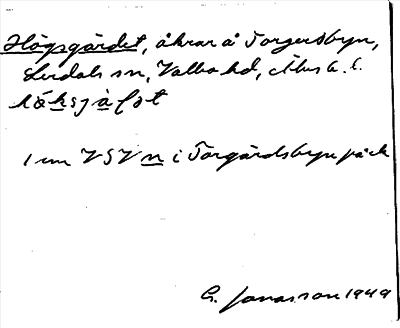 Högsgärdet, åkrar å Torgersbyn,
Lerdals sn, Valbo hd, Älvsb. l.
hö̀ksjà̱ḷət
1 mm VSV n i Torgärdsbyn på ek
G. Jonasson 1949